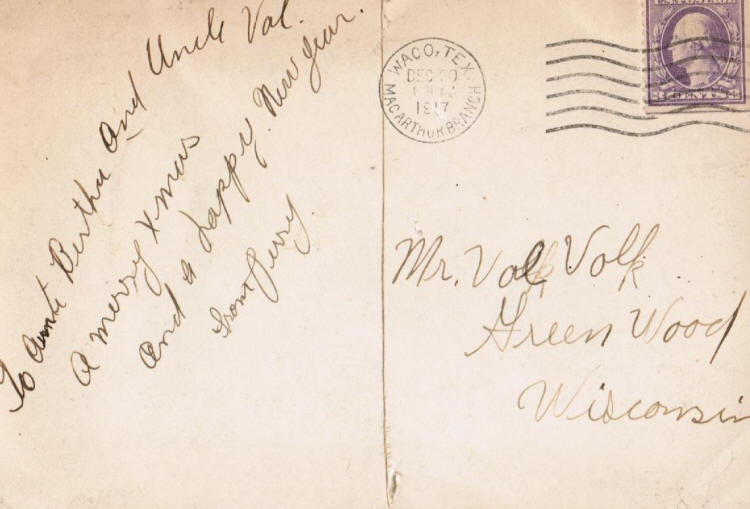 To Aunte Bertha and Uncle Val.
a merry Xmas
and a Happy. New Year.
from Jerry.
WACO, TEX.
DEC 20
1917
MACARTHUR BRANCH
Mr. Val Volk
Green Wood
Wisconsin